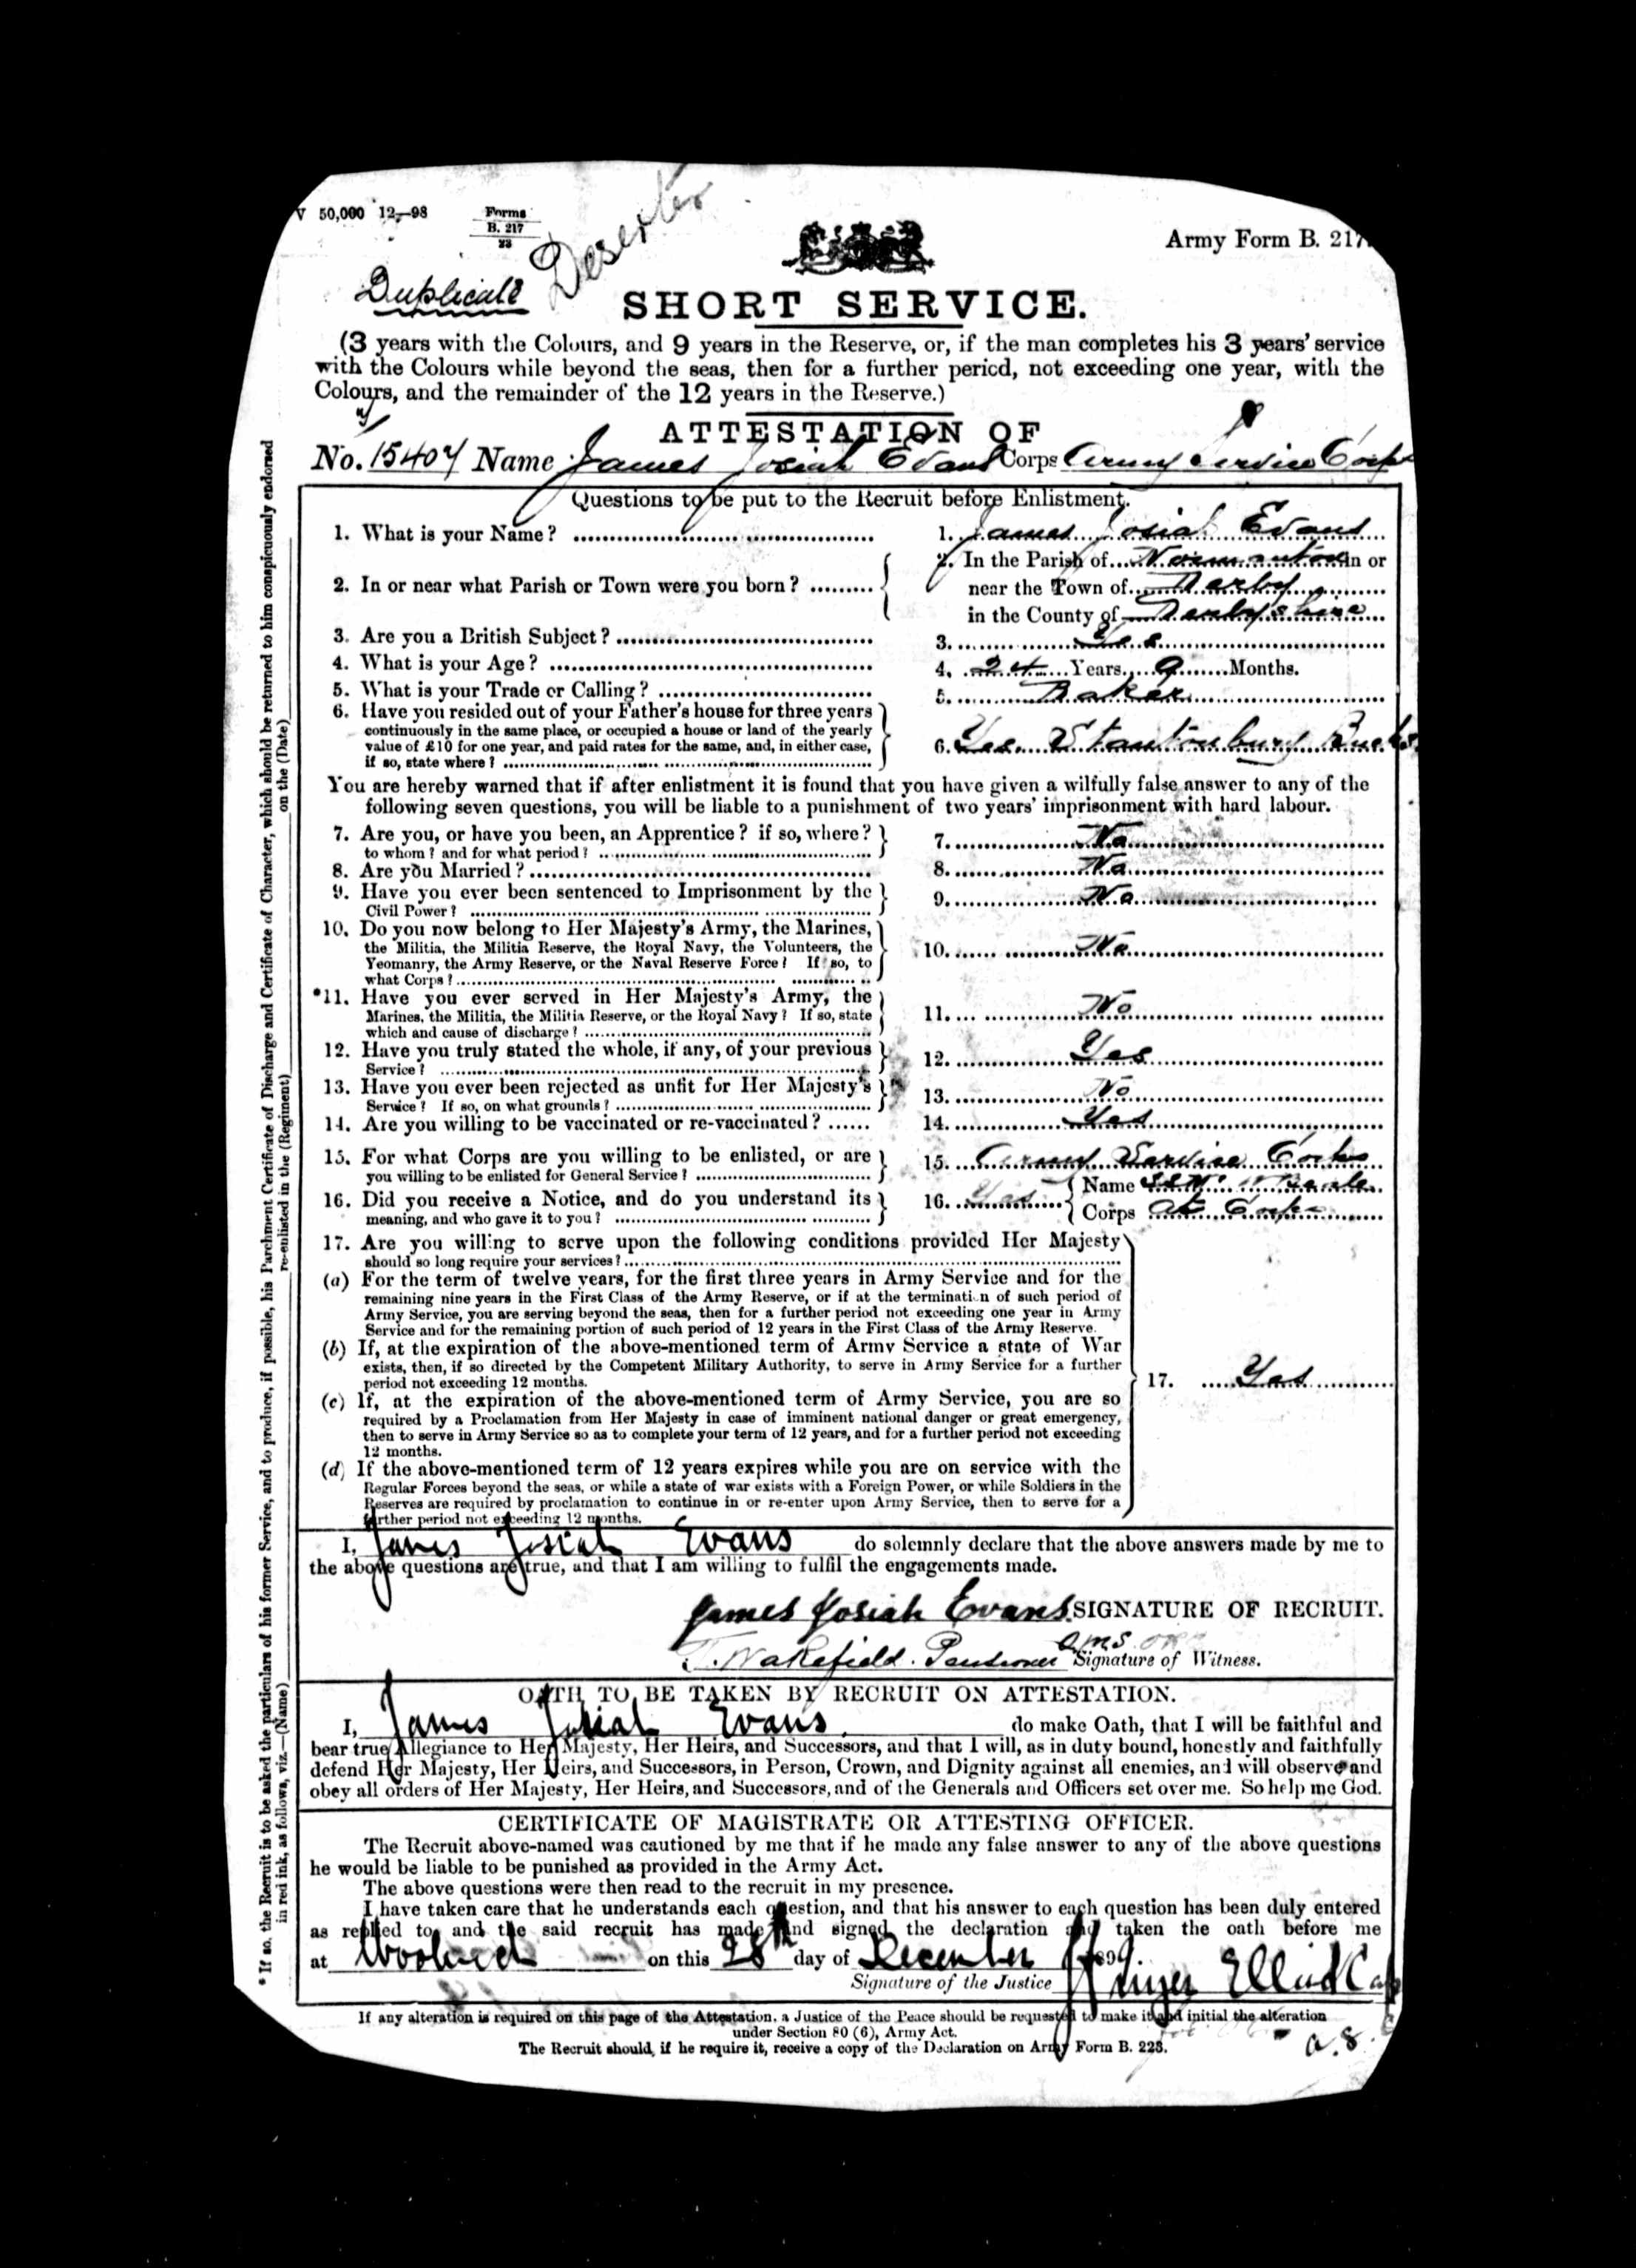 V 50,000 12—98 Forms
B. 217
23
Deserter
Army Form B. 217.
Duplicate
SHORT SERVICE.
(3 years with the Colours, and 9 years in the Reserve, or, if the man completes his 3 years' service
with the Colours while beyond the seas, then for a further period, not exceeding one year, with the
Colours, and the remainder of the 12 years in the Reserve.)
ATTESTATION OF
No. 15407 Name James Josiah Evans Corps Army Service Corps
Questions to be put to the Recruit before Enlistment.
1. What is your Name? 1. James Josiah Evans
2. In or near what Parish or Town were you born? 2. In the Parish of Normanton in or
near the Town of Derby
in the County of Derbyshire
3. Are you a British Subject? 3. Yes
4. What is your Age? 4. 24 Years 9 Months.
5. What is your Trade or Calling? 5. Baker
6. Have you resided out of your Father's house for three years
continuously in the same place, or occupied a house or land of the yearly
value of £10 for one year, and paid rates for the same, and, in either case, 6. Yes Stantonbury Bucks
if so, state where?
You are hereby warned that if after enlistment it is found that you have given a wilfully false answer to any of the
following seven questions, you will be liable to a punishment of two years' imprisonment with hard labour.
7. Are you, or have you been, an Apprentice? if so, where? 7. No
to whom? and for what period?
8. Are you Married? 8. No
9. Have you ever been sentenced to Imprisonment by the 9. No
Civil Power?
10. Do you now belong to Her Majesty's Army, the Marines,
the Militia, the Militia Reserve, the Royal Navy, the Volunteers, the 10. No
Yeomanry, the Army Reserve, or the Naval Reserve Force? If so, to
what Corps?
*11. Have you ever served in Her Majesty's Army, the
Marines, the Militia, the Militia Reserve, or the Royal Navy? If so, state 11. No
which and cause of discharge?
12. Have you truly stated the whole, if any, of your previous 12. Yes
Service?
13. Have you ever been rejected as unfit for Her Majesty's 13. No
Service? If so, on what grounds?
14. Are you willing to be vaccinated or re-vaccinated? 14. Yes
15. For what Corps are you willing to be enlisted, or are 15. Army Service Corps
you willing to be enlisted for General Service?
16. Did you receive a Notice, and do you understand its 16. Yes Name
meaning, and who gave it to you? Corps
17. Are you willing to serve upon the following conditions provided Her Majesty
should so long require your services?
(a) For the term of twelve years, for the first three years in Army Service and for the
remaining nine years in the First Class of the Army Reserve, or if at the termination of such period of
Army Service, you are serving beyond the seas, then for a further period not exceeding one year in Army
Service and for the remaining portion of such period of 12 years in the First Class of the Army Reserve.
(b) If, at the expiration of the above-mentioned term of Army Service a state of War
exists, then, if so directed by the Competent Military Authority, to serve in Army Service for a further
period not exceeding 12 months. 17. Yes
(c) If, at the expiration of the above-mentioned term of Army Service, you are so
required by a Proclamation from Her Majesty in case of imminent national danger or great emergency,
then to serve in Army Service so as to complete your term of 12 years, and for a further period not exceeding
12 months.
(d) If the above-mentioned term of 12 years expires while you are on service with the
Regular Forces beyond the seas, or while a state of war exists with a Foreign Power, or while Soldiers in the
Reserves are required by proclamation to continue in or re-enter upon Army Service, then to serve for a
further period not exceeding 12 months.
I, James Josiah Evans do solemnly declare that the above answers made by me to
the above questions are true, and that I am willing to fulfil the engagements made.
James Josiah Evans SIGNATURE OF RECRUIT.
Wakefield. Pensioner Signature of Witness.
OATH TO BE TAKEN BY RECRUIT ON ATTESTATION.
I, James Josiah Evans do make Oath, that I will be faithful and
bear true Allegiance to Her Majesty, Her Heirs, and Successors, and that I will, as in duty bound, honestly and faithfully
defend Her Majesty, Her Heirs, and Successors, in Person, Crown, and Dignity against all enemies, and will observe and
obey all orders of Her Majesty, Her Heirs, and Successors, and of the Generals and Officers set over me. So help me God.
CERTIFICATE OF MAGISTRATE OR ATTESTING OFFICER.
The Recruit above-named was cautioned by me that if he made any false answer to any of the above questions
he would be liable to be punished as provided in the Army Act.
The above questions were then read to the recruit in my presence.
I have taken care that he understands each question, and that his answer to each question has been duly entered
as replied to, and the said recruit has made and signed the declaration and taken the oath before me
at Woolwich on this 28th day of December 189
Signature of the Justice
If any alteration is required on this page of the Attestation, a Justice of the Peace should be requested to make it and initial the alteration
under Section 80 (6), Army Act.
The Recruit should, if he require it, receive a copy of the Declaration on Army Form B. 223.
* If so, the Recruit is to be asked the particulars of his former Service, and to produce, if possible, his Parchment Certificate of Discharge and Certificate of Character, which should be returned to him conspicuously endorsed
in red ink, as follows, viz.—(Name) re-enlisted in the (Regiment) on the (Date)